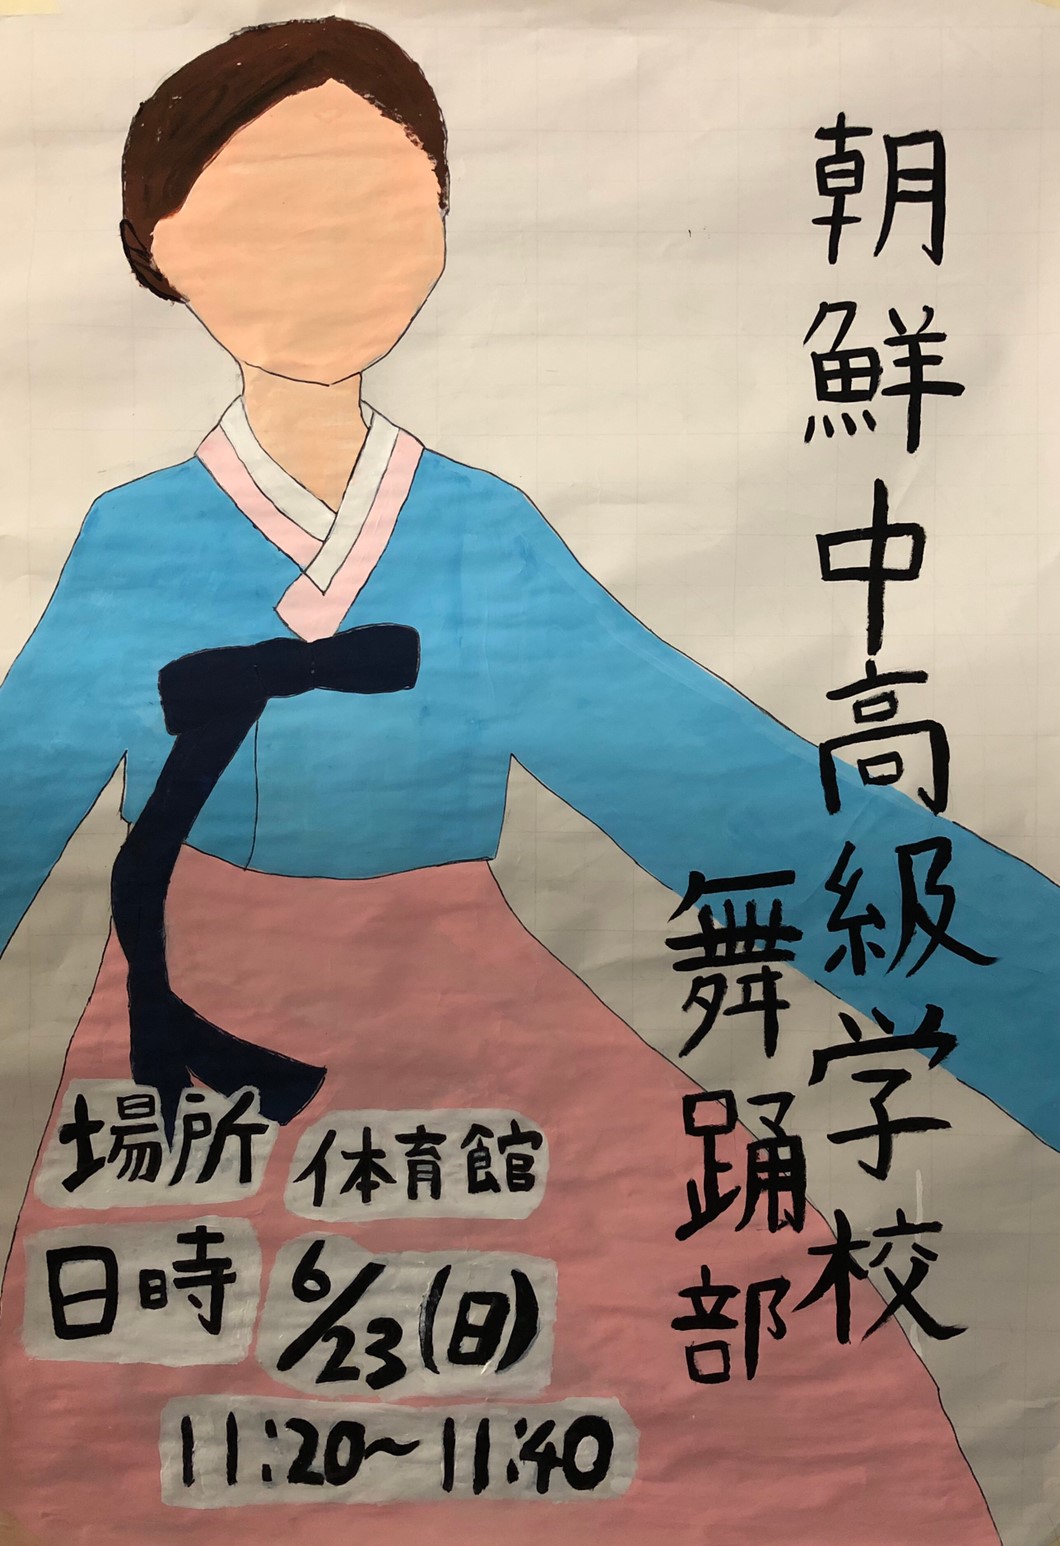 朝鮮中高級学校
舞踊部
場所 体育館
日時 6/23(日)
11:20~11:40